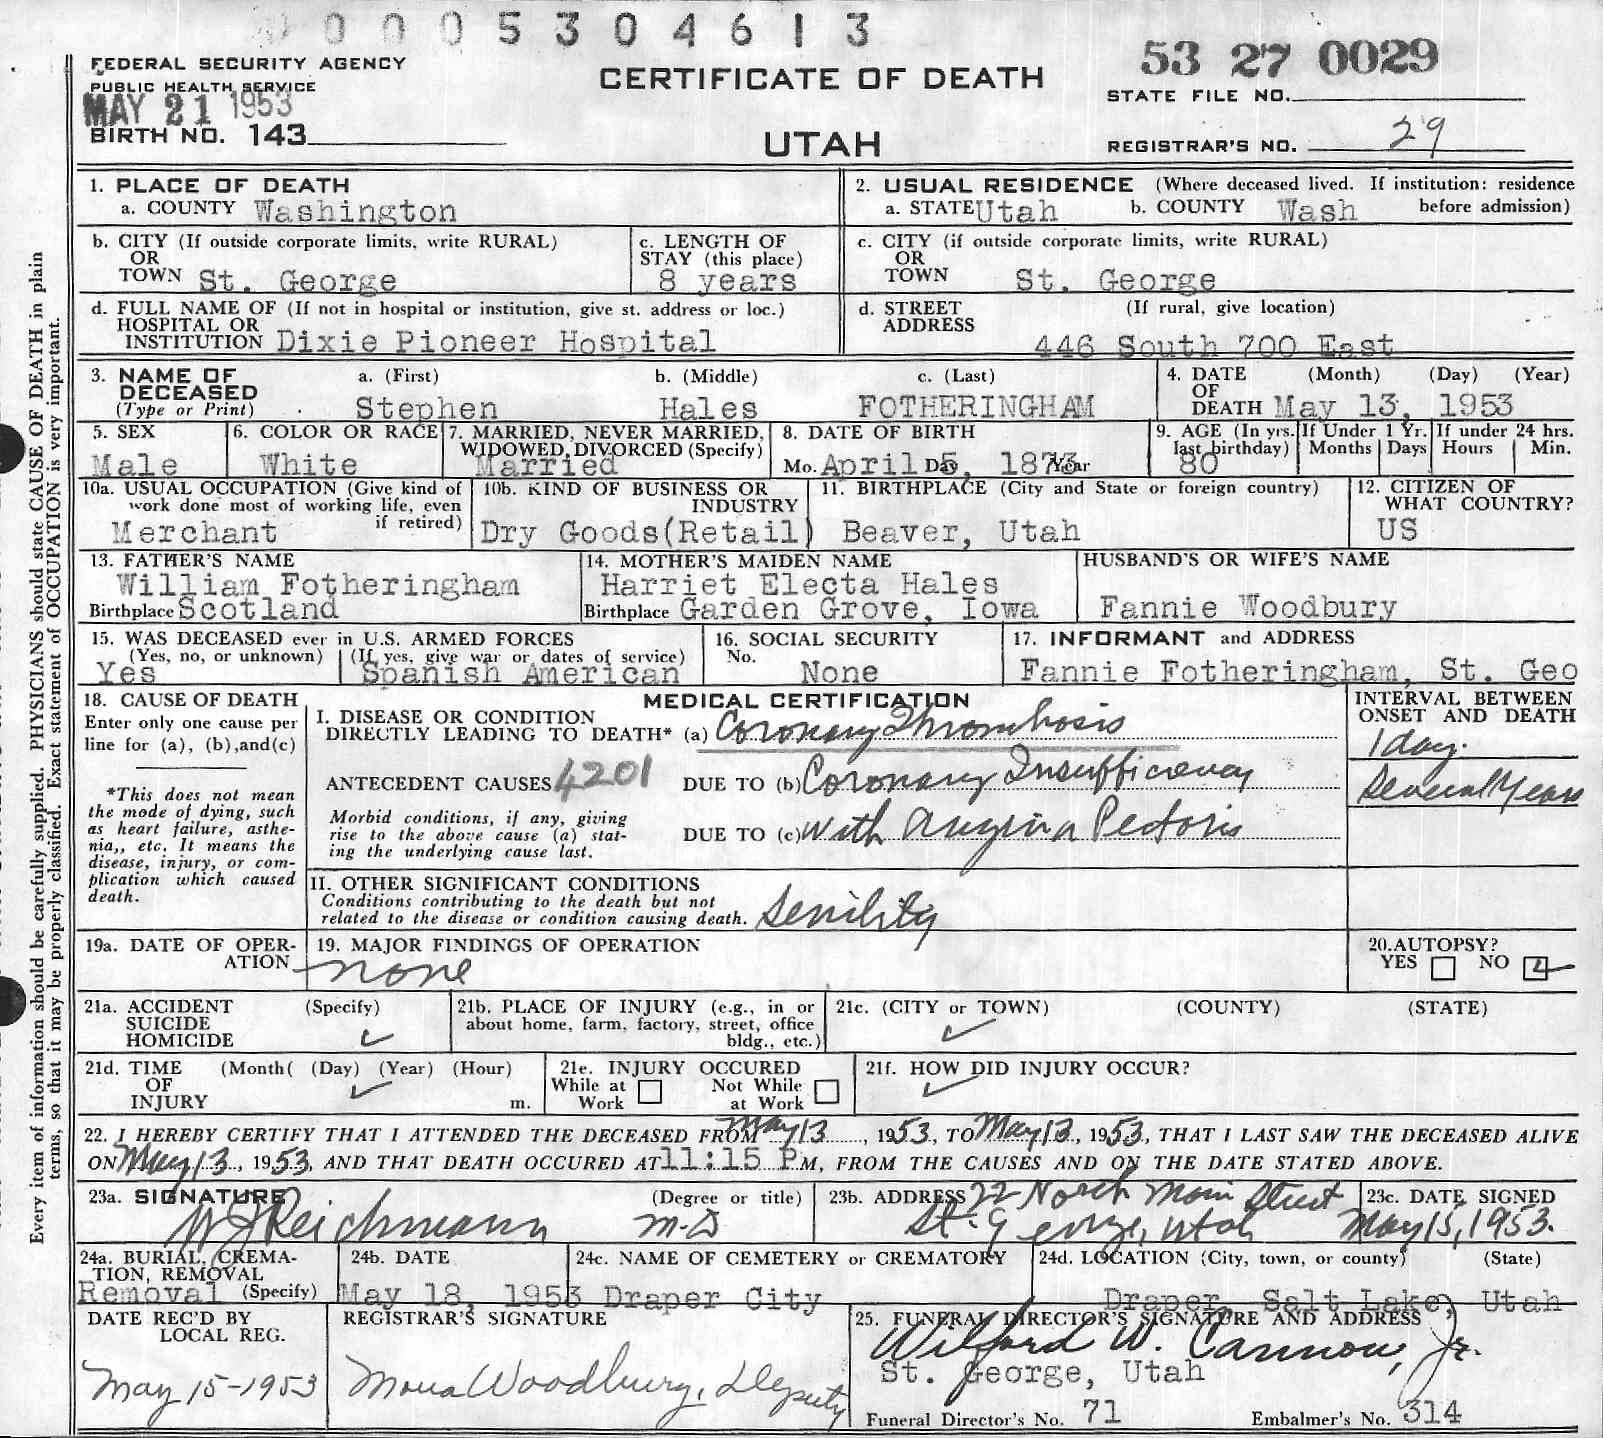 0005304613
FEDERAL SECURITY AGENCY
PUBLIC HEALTH SERVICE
MAY 21 1953
BIRTH NO. 143
CERTIFICATE OF DEATH
UTAH
53 27 0029
STATE FILE NO.
REGISTRAR'S NO. 29
Every item of information should be carefully supplied. PHYSICIANS should state CAUSE OF DEATH in plain
terms, so that it may be properly classified. Exact statement of OCCUPATION is very important.
1. PLACE OF DEATH
a. COUNTY Washington
2. USUAL RESIDENCE (Where deceased lived. If institution: residence
a. STATE Utah b. COUNTY Wash before admission)
b. CITY (If outside corporate limits, write RURAL)
OR
TOWN St. George
c. LENGTH OF
STAY (this place)
8 years
c. CITY (if outside corporate limits, write RURAL)
OR
TOWN St. George
d. FULL NAME OF (If not in hospital or institution, give st. address or loc.)
HOSPITAL OR
INSTITUTION Dixie Pioneer Hospital
d. STREET (If rural, give location)
ADDRESS
446 South 700 East
3. NAME OF a. (First) b. (Middle) c. (Last)
DECEASED
(Type or Print) Stephen Hales FOTHERINGHAM
4. DATE (Month) (Day) (Year)
OF
DEATH May 13, 1953
5. SEX
Male
6. COLOR OR RACE
White
7. MARRIED, NEVER MARRIED,
WIDOWED, DIVORCED (Specify)
Married
8. DATE OF BIRTH
Mo. April Day 5, 1873 Year
9. AGE (In yrs.
last birthday)
80
If Under 1 Yr.
Months Days
If under 24 hrs.
Hours Min.
10a. USUAL OCCUPATION (Give kind of
work done most of working life, even
if retired)
Merchant
10b. KIND OF BUSINESS OR
INDUSTRY
Dry Goods(Retail)
11. BIRTHPLACE (City and State or foreign country)
Beaver, Utah
12. CITIZEN OF
WHAT COUNTRY?
US
13. FATHER'S NAME
William Fotheringham
Birthplace Scotland
14. MOTHER'S MAIDEN NAME
Harriet Electa Hales
Birthplace Garden Grove, Iowa
HUSBAND'S OR WIFE'S NAME
Fannie Woodbury
15. WAS DECEASED ever in U.S. ARMED FORCES
(Yes, no, or unknown) (If yes, give war or dates of service)
Yes Spanish American
16. SOCIAL SECURITY
No.
None
17. INFORMANT and ADDRESS
Fannie Fotheringham, St. Geo
18. CAUSE OF DEATH
Enter only one cause per
line for (a), (b), and (c)
*This does not mean
the mode of dying, such
as heart failure, asthe-
nia,, etc. It means the
disease, injury, or com-
plication which caused
death.
MEDICAL CERTIFICATION
I. DISEASE OR CONDITION
DIRECTLY LEADING TO DEATH* (a) Coronary Thrombosis
ANTECEDENT CAUSES 4201 DUE TO (b) Coronary Insufficiency
Morbid conditions, if any, giving
rise to the above cause (a) stat-
ing the underlying cause last.
DUE TO (c) with Angina Pectoris
INTERVAL BETWEEN
ONSET AND DEATH
1 day.
Several Years
II. OTHER SIGNIFICANT CONDITIONS
Conditions contributing to the death but not
related to the disease or condition causing death. Senility
19a. DATE OF OPER-
ATION
19. MAJOR FINDINGS OF OPERATION
none
20. AUTOPSY?
YES NO
21a. ACCIDENT (Specify)
SUICIDE
HOMICIDE
21b. PLACE OF INJURY (e.g., in or
about home, farm, factory, street, office
bldg., etc.)
21c. (CITY or TOWN) (COUNTY) (STATE)
21d. TIME (Month( (Day) (Year) (Hour)
OF
INJURY m.
21e. INJURY OCCURED
While at Work Not While at Work
21f. HOW DID INJURY OCCUR?
22. I HEREBY CERTIFY THAT I ATTENDED THE DECEASED FROM May 13, 1953, TO May 13, 1953, THAT I LAST SAW THE DECEASED ALIVE
ON May 13, 1953, AND THAT DEATH OCCURED AT 11:15 P M, FROM THE CAUSES AND ON THE DATE STATED ABOVE.
23a. SIGNATURE (Degree or title)
W J Reichmann M-D
23b. ADDRESS 22 North Main Street
St. George, Utah
23c. DATE SIGNED
May 15, 1953.
24a. BURIAL, CREMA-
TION, REMOVAL
Removal (Specify)
24b. DATE
May 18, 1953
24c. NAME OF CEMETERY OR CREMATORY
Draper City
24d. LOCATION (City, town, or county) (State)
Draper, Salt Lake, Utah
DATE REC'D BY
LOCAL REG.
May 15-1953
REGISTRAR'S SIGNATURE
Mona Woodbury, Deputy
25. FUNERAL DIRECTOR'S SIGNATURE AND ADDRESS
Wilford W. Cannon, Jr.
St. George, Utah
Funeral Director's No. 71 Embalmer's No. 314